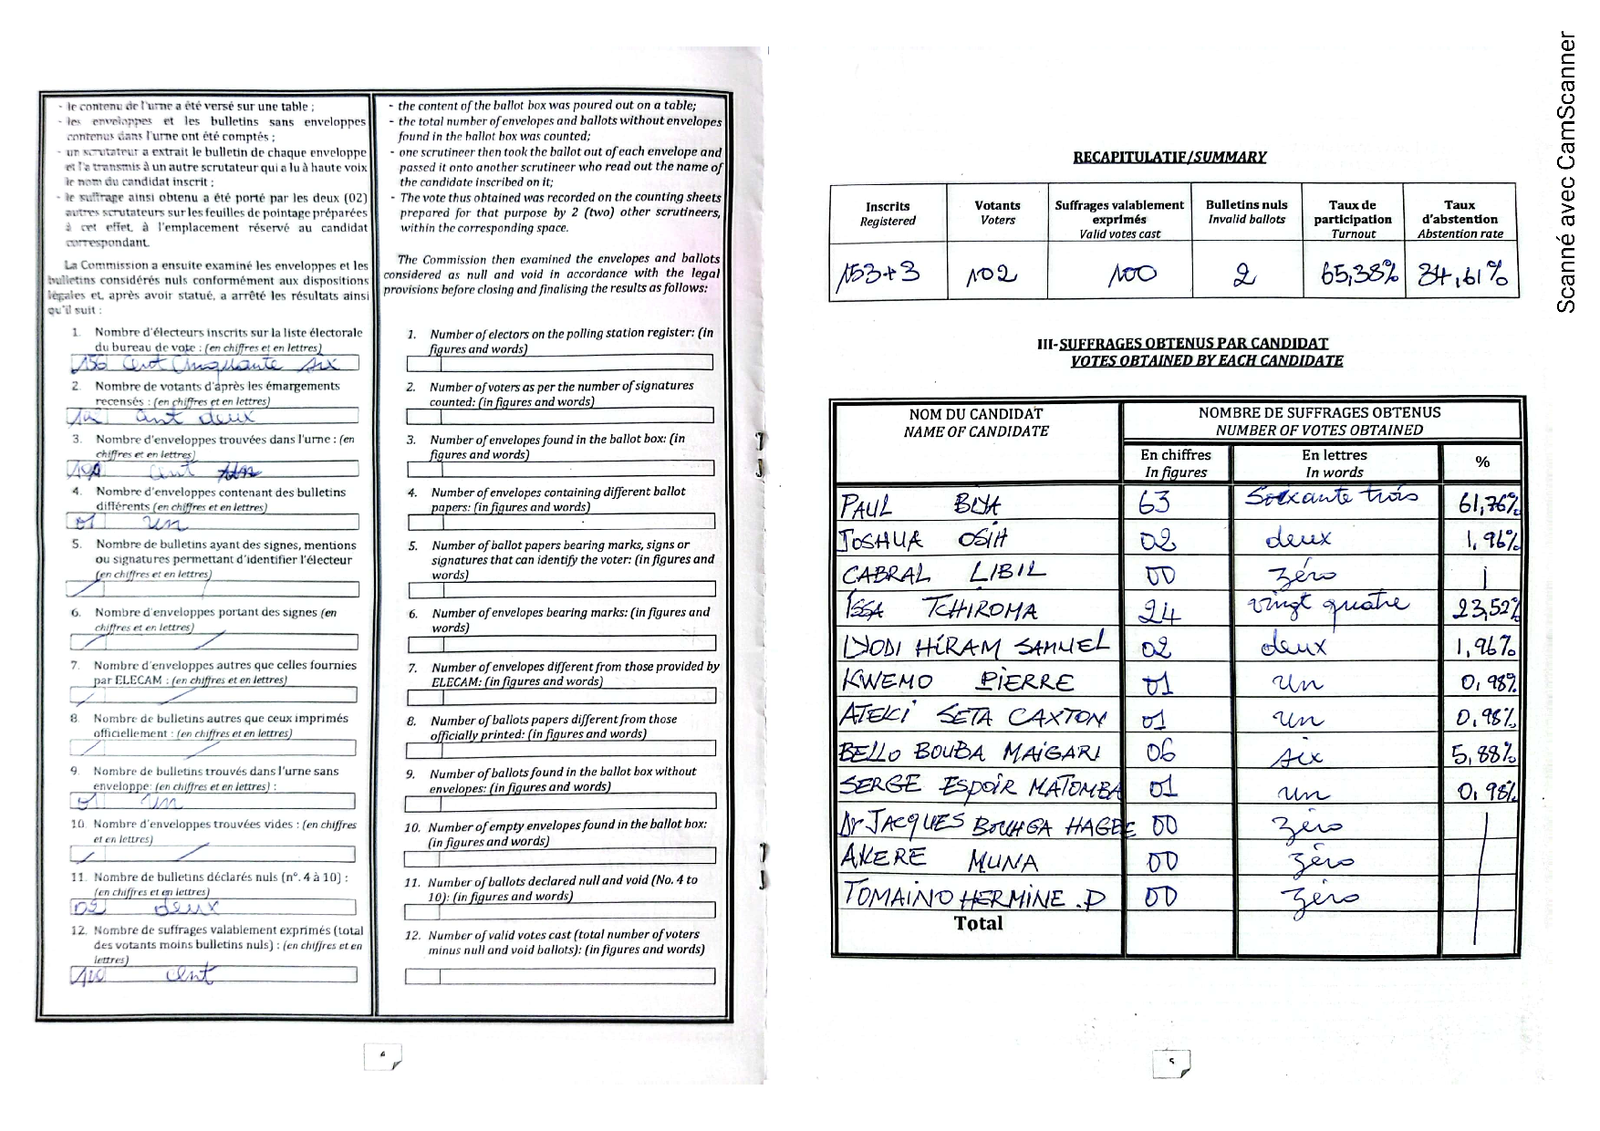 - le contenu de l'urne a été versé sur une table ;
- les enveloppes et les bulletins sans enveloppes
contenus dans l'urne ont été comptés ;
- un scrutateur a extrait le bulletin de chaque enveloppe
et l'a transmis à un autre scrutateur qui a lu à haute voix
le nom du candidat inscrit ;
- le suffrage ainsi obtenu a été porté par les deux (02)
autres scrutateurs sur les feuilles de pointage préparées
à cet effet, à l'emplacement réservé au candidat
correspondant.
La Commission a ensuite examiné les enveloppes et les
bulletins considérés nuls conformément aux dispositions
légales et, après avoir statué, a arrêté les résultats ainsi
qu'il suit :
1. Nombre d'électeurs inscrits sur la liste électorale
du bureau de vote : (en chiffres et en lettres)
156 Cent Cinquante six
2. Nombre de votants d'après les émargements
recensés : (en chiffres et en lettres)
102 cent deux
3. Nombre d'enveloppes trouvées dans l'urne : (en
chiffres et en lettres)
cent
4. Nombre d'enveloppes contenant des bulletins
différents (en chiffres et en lettres)
01 un
5. Nombre de bulletins ayant des signes, mentions
ou signatures permettant d'identifier l'électeur
(en chiffres et en lettres)
6. Nombre d'enveloppes portant des signes (en
chiffres et en lettres)
7. Nombre d'enveloppes autres que celles fournies
par ELECAM : (en chiffres et en lettres)
8. Nombre de bulletins autres que ceux imprimés
officiellement : (en chiffres et en lettres)
9. Nombre de bulletins trouvés dans l'urne sans
enveloppe: (en chiffres et en lettres) :
01 un
10. Nombre d'enveloppes trouvées vides : (en chiffres
et en lettres)
11. Nombre de bulletins déclarés nuls (n°. 4 à 10) :
(en chiffres et en lettres)
02 deux
12. Nombre de suffrages valablement exprimés (total
des votants moins bulletins nuls) : (en chiffres et en
lettres)
100 cent
- the content of the ballot box was poured out on a table;
- the total number of envelopes and ballots without envelopes
found in the ballot box was counted;
- one scrutineer then took the ballot out of each envelope and
passed it onto another scrutineer who read out the name of
the candidate inscribed on it;
- The vote thus obtained was recorded on the counting sheets
prepared for that purpose by 2 (two) other scrutineers,
within the corresponding space.
The Commission then examined the envelopes and ballots
considered as null and void in accordance with the legal
provisions before closing and finalising the results as follows:
1. Number of electors on the polling station register: (in
figures and words)
2. Number of voters as per the number of signatures
counted: (in figures and words)
3. Number of envelopes found in the ballot box: (in
figures and words)
4. Number of envelopes containing different ballot
papers: (in figures and words)
5. Number of ballot papers bearing marks, signs or
signatures that can identify the voter: (in figures and
words)
6. Number of envelopes bearing marks: (in figures and
words)
7. Number of envelopes different from those provided by
ELECAM: (in figures and words)
8. Number of ballots papers different from those
officially printed: (in figures and words)
9. Number of ballots found in the ballot box without
envelopes: (in figures and words)
10. Number of empty envelopes found in the ballot box:
(in figures and words)
11. Number of ballots declared null and void (No. 4 to
10): (in figures and words)
12. Number of valid votes cast (total number of voters
minus null and void ballots): (in figures and words)
4
RECAPITULATIF/SUMMARY
Inscrits Votants Suffrages valablement Bulletins nuls Taux de Taux
Registered Voters exprimés Invalid ballots participation d'abstention
Valid votes cast Turnout Abstention rate
153+3 102 100 2 65,38% 34,61%
III-SUFFRAGES OBTENUS PAR CANDIDAT
VOTES OBTAINED BY EACH CANDIDATE
NOM DU CANDIDAT NOMBRE DE SUFFRAGES OBTENUS
NAME OF CANDIDATE NUMBER OF VOTES OBTAINED
En chiffres En lettres %
In figures In words
PAUL BIYA 63 Soixante trois 61,76%
JOSHUA OSIH 02 deux 1,96%
CABRAL LIBII 00 zéro
ISSA TCHIROMA 24 vingt quatre 23,52%
IYODI HIRAM SAMUEL 02 deux 1,96%
KWEMO PIERRE 01 un 0,98%
ATEKI SETA CAXTON 01 un 0,98%
BELLO BOUBA MAIGARI 06 six 5,88%
SERGE ESPOIR MATOMBA 01 un 0,98%
Dr JACQUES BOUHGA HAGBE 00 zéro
AKERE MUNA 00 zéro
TOMAINO HERMINE .P 00 zéro
Total
5
Scanné avec CamScanner